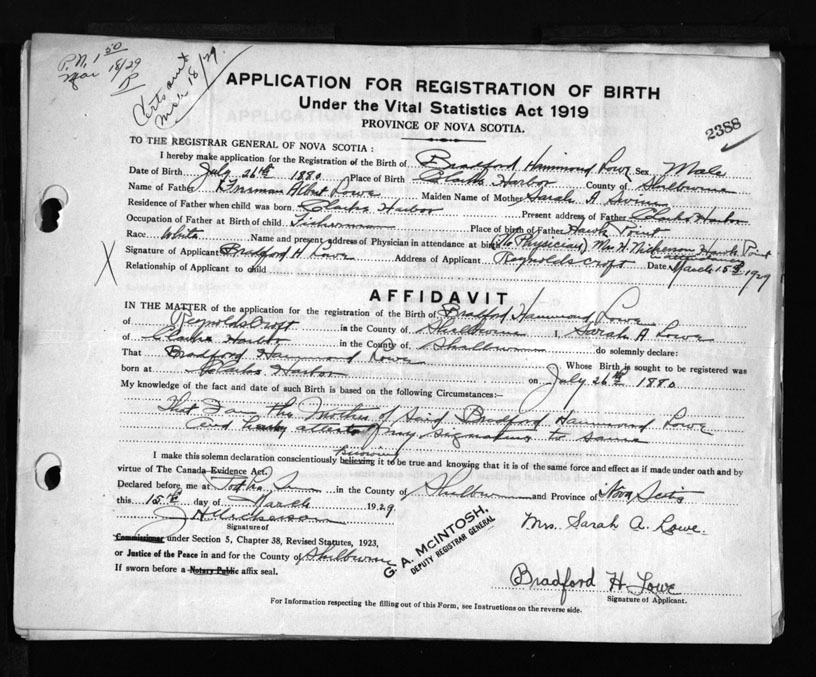 P.N. 1 50
Mar 18/29
Certs
Mar 18/29.
APPLICATION FOR REGISTRATION OF BIRTH
Under the Vital Statistics Act 1919
PROVINCE OF NOVA SCOTIA.
2388
TO THE REGISTRAR GENERAL OF NOVA SCOTIA :
I hereby make application for the Registration of the Birth of Bradford Hammond Lowe Sex Male
Date of Birth July 26th 1880 Place of Birth Clarks Harbor County of Shelburne
Name of Father Albert Lowe Maiden Name of Mother Sarah A
Residence of Father when child was born Clarks Harbor Present address of Father Clarks Harbor
Occupation of Father at Birth of child Fisherman Place of birth of Father Hawk Point
Race White Name and present address of Physician in attendance at birth (No Physician) Mrs N. Nickerson Hawk Point
Signature of Applicant Bradford H Lowe Address of Applicant Reynoldscroft Date March 15th 1929
Relationship of Applicant to child
X
AFFIDAVIT
IN THE MATTER of the application for the registration of the Birth of Bradford Hammond Lowe
of Reynoldscroft in the County of Shelburne I, Sarah A Lowe
of Clarks Harbor in the County of Shelburne do solemnly declare:
That Bradford Hammond Lowe Whose Birth is sought to be registered was
born at Clarks Harbor on July 26th 1880
My knowledge of the fact and date of such Birth is based on the following Circumstances:—
That I am the Mother of Said Bradford Hammond Lowe
and attest my signature to same
knowing
I make this solemn declaration conscientiously believing it to be true and knowing that it is of the same force and effect as if made under oath and by
virtue of The Canada Evidence Act.
Declared before me at in the County of Shelburne and Province of Nova Scotia
this 15th day of March 1929
Mrs. Sarah A. Lowe.
Signature of
Commissioner under Section 5, Chapter 38, Revised Statutes, 1923,
or Justice of the Peace in and for the County of Shelburne
If sworn before a Notary Public affix seal.
G. A. McINTOSH,
DEPUTY REGISTRAR GENERAL
Bradford H. Lowe
Signature of Applicant.
For Information respecting the filling out of this Form, see Instructions on the reverse side.